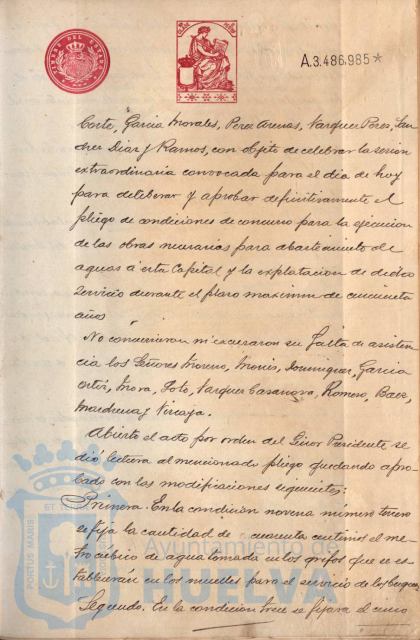 TIMBRE DEL ESTADO
A.3.486.985*
Corte, Garcia Morales, Perez Arenas, Vazquez Perez, San
chez Diaz y Ramos, con objeto de celebrar la sesion
extraordinaria convocada para el dia de hoy
para deliberar y aprobar definitivamente el
pliego de condiciones de concurso para la ejecucion
de las obras necesarias para abastecimiento de
aguas á esta Capital y la explotacion de dicho
servicio durante el plazo maximum de cincuenta
años
No concurrieron ni excusaron su falta de asisten
cia los Señores Moreno, Dominguez, Garcia
Ortiz, Mora, Toto, Vazquez Casanova, Romero, Baez,
y Vizcaya.
Abierto el acto por orden del Señor Presidente se
dió lectura al mencionado pliego quedando apro-
bado con las modificaciones siguientes:
Primera. En la condición novena número tercero
se fija la cantidad de cuarenta centimos el me-
tro cubico de agua tomada en los grifos que se es-
tablecerán en los muelles para el servicio de los buques
Segundo. En la condición trece se fijara el cinco
PORTUS MARIS ET TERRAE
Ayuntamiento de
HUELVA